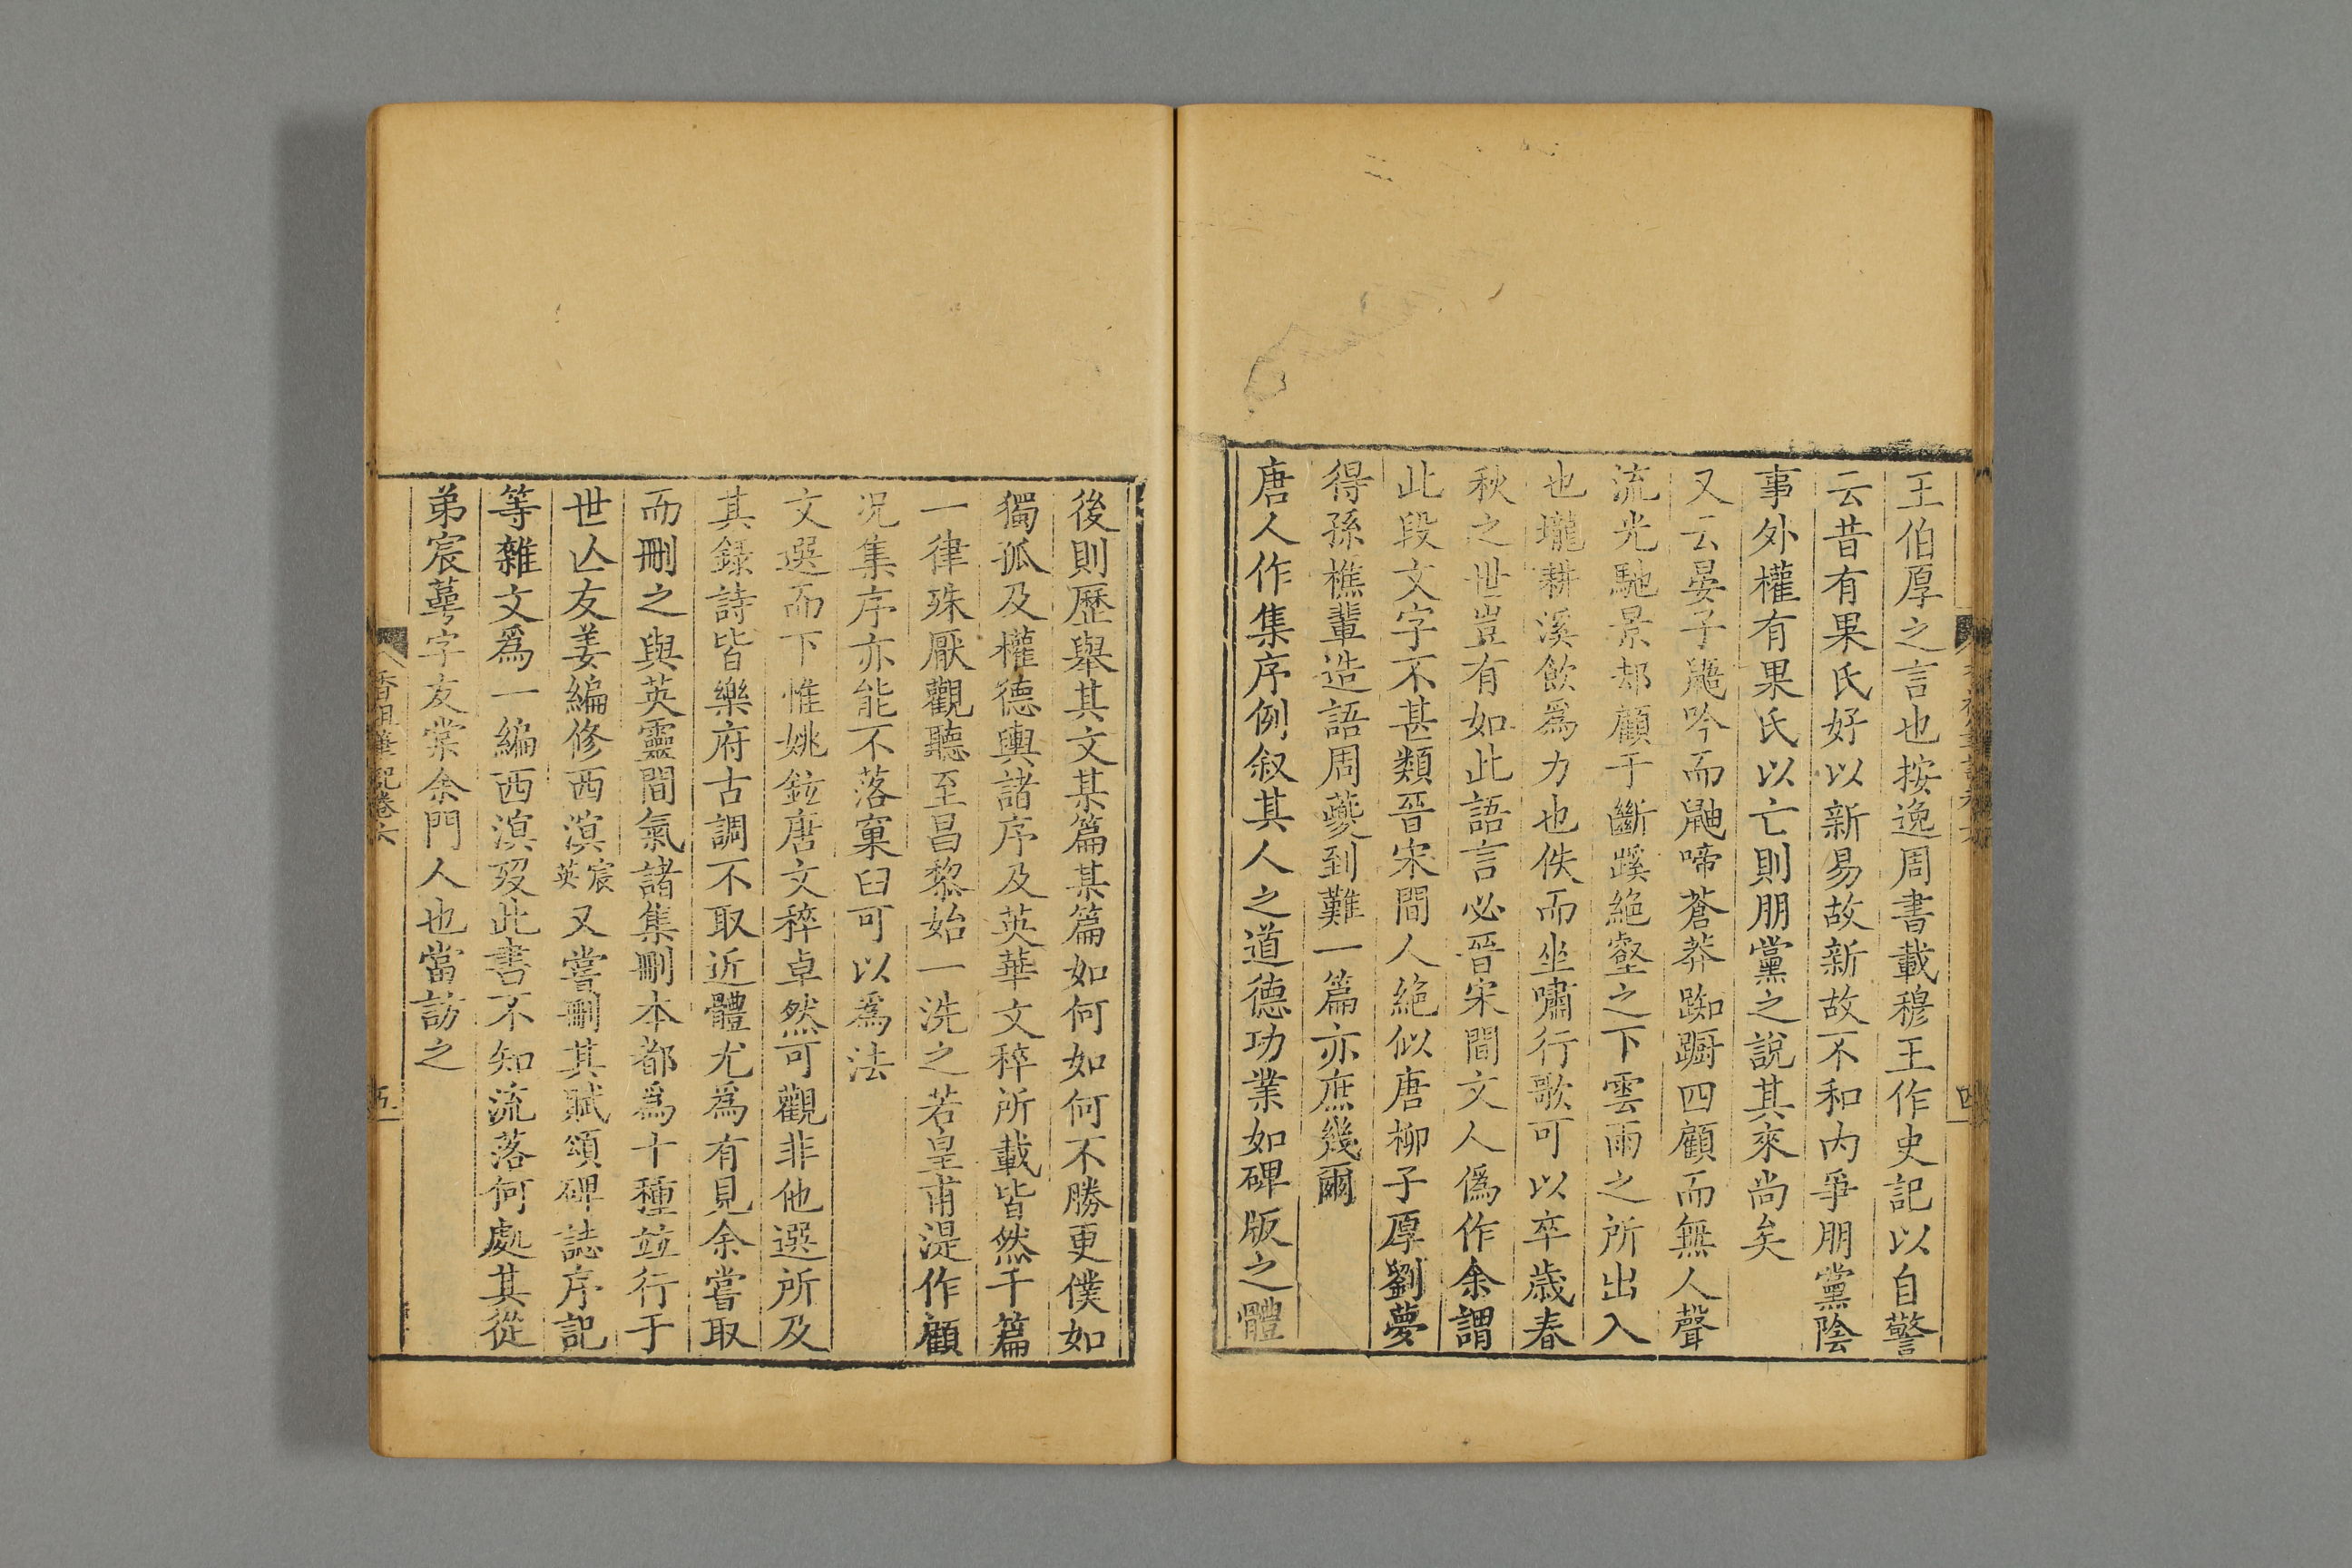 王伯厚之言也按逸周書載穆王作史記以自警
云昔有果氏好以新易故新故不和內爭朋黨陰
事外權有果氏以亡則朋黨之說其來尚矣
又云晏子鼯吟而鼬啼蒼莽踟蹰四顧而無人聲
流光馳景却顧于斷蹊絕壑之下雲雨之所出入
也壠耕溪飲爲力也佚而坐嘯行歌可以卒歲春
秋之世豈有如此語言必晉宋間文人僞作余謂
此段文字不甚類晉宋間人絕似唐柳子厚劉夢
得孫樵輩造語周夔到難一篇亦庶幾爾
唐人作集序例叙其人之道德功業如碑版之體
四
後則歷舉其文某篇某篇如何如何不勝更僕如
獨孤及權德輿諸序及英華文稡所載皆然千篇
一律殊厭觀聽至昌黎始一洗之若皇甫湜作顧
况集序亦能不落窠臼可以爲法
文選而下惟姚鉉唐文稡卓然可觀非他選所及
其錄詩皆樂府古調不取近體尤爲有見余嘗取
而刪之與英靈間氣諸集刪本都爲十種竝行于
世亾友姜編修西溟宸英又嘗刪其賦頌碑誌序記
等雜文爲一編西溟歿此書不知流落何處其從
弟宸蕚字友棠余門人也當訪之
香祖筆記卷六
五